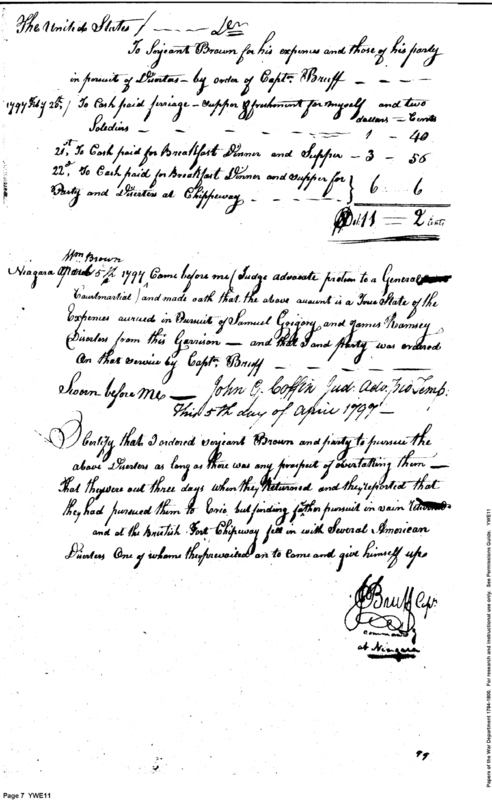 The United States / — — Der
To Serjeant Brown for his expences and those of his party
in pursuit of Diserters — by order of Capt. Bruff — — — —
1797 Feby 20th / To Cash paid ferriage — supper & freshment for myself and two
dollars — Cents
Soldiers — — — — — — — 1 — 40
21st To Cash paid for Breakfast Dinner and Supper — 3 — 56
22d To Cash paid for Breakfast Dinner and Supper for
Party and Diserters at Chippeway — — — — } 6 6
Dol 11 = 2 Cents
Wm Brown
Niagara 5th 1797 Came before me (Judge advocate protem to a General
Courtmartial) and made oath that the above account is a True State of the
Expences accrued in Pursuit of Samuel Gregory and James Ramsey
Diserters from this Garrison — and that I and party was ordered
On that service by Capt. Bruff — — — —
Sworn before me — John G. Coffin Jud. Adv. Pro. Temp.
This 5th day of April 1797 —
I Certify that I ordered serjeant Brown and party to pursue the
above Diserters as long as there was any prospect of overtaking them —
That they were out three days when they returned and they reported that
they had pursued them to Erie but finding father pursuit in vain returned
and at the Buistish Fort Chipeway fell in with Several American
Diserters One of whom they prevailed on to Come and give himself up
J Bruff Capt.
command
at Niagara
99
Page 7 YWE11
Papers of the War Department 1784-1800. For research and instructional use only. See Permissions Guide. YWE11